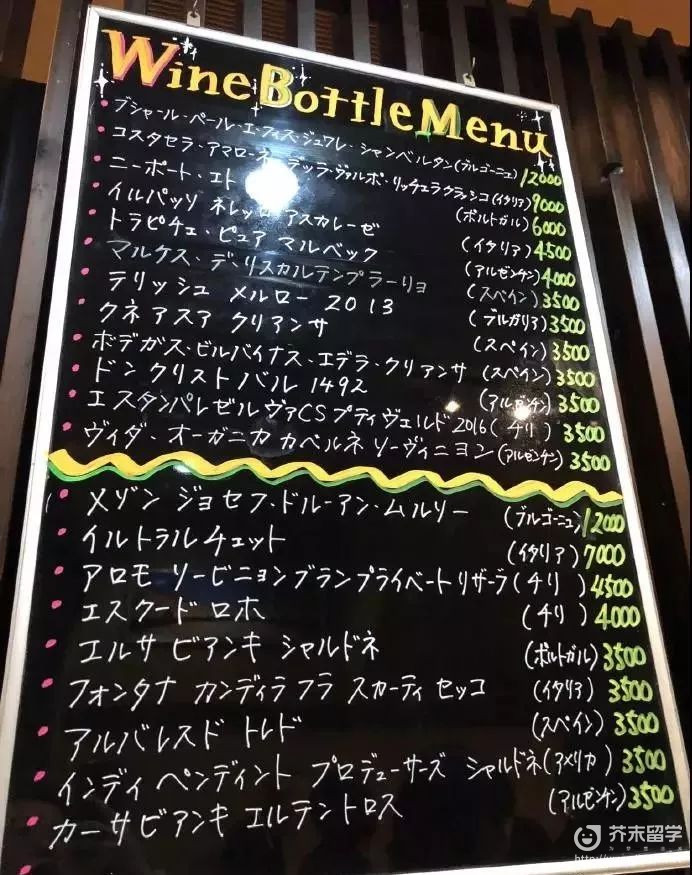 Wine Bottle Menu
ブシャール・ペール・エ・フィス・ジュヴレ シャンベルタン(ブルゴーニュ) 12000
コスタセラ・アマローネ デッラ・ヴァルポ・リッチェラ クラッシコ(イタリア) 9000
ニーポート・エト (ポルトガル) 6000
イルパッソ ネレッロ アスカレーゼ (イタリア) 4500
トラピチェ・ピュア マルベック (アルゼンチン) 4000
マルケス・デ・リスカルテンプラーリョ (スペイン) 3500
テリッシュ メルロー 2013 (ブルガリア) 3500
クネ アスア クリアンサ (スペイン) 3500
ボデガス・ビルバイナス・エデラ・クリアンサ (スペイン) 3500
ドン クリストバル 1492 (アルゼンチン) 3500
エスタンパ レゼルヴァ CS プティヴェルド 2016 (チリ) 3500
ヴィダ・オーガニカ カベルネ ソーヴィニヨン (アルゼンチン) 3500
メゾン ジョセフ・ドルーアン・ムルソー (ブルゴーニュ) 12000
イルトラルチェット (イタリア) 7000
アロモ ソービニョンブラン プライベート リザーブ (チリ) 4500
エスクード ロホ (チリ) 4000
エルサ ビアンキ シャルドネ (ポルトガル) 3500
フォンタナ カンディラ フラスカーティ セッコ (イタリア) 3500
アルバレスド トレド (スペイン) 3500
インディペンディント プロデューサーズ シャルドネ (アメリカ) 3500
カーサ ビアンキ エルテントロス (アルゼンチン) 3500
芥末留学